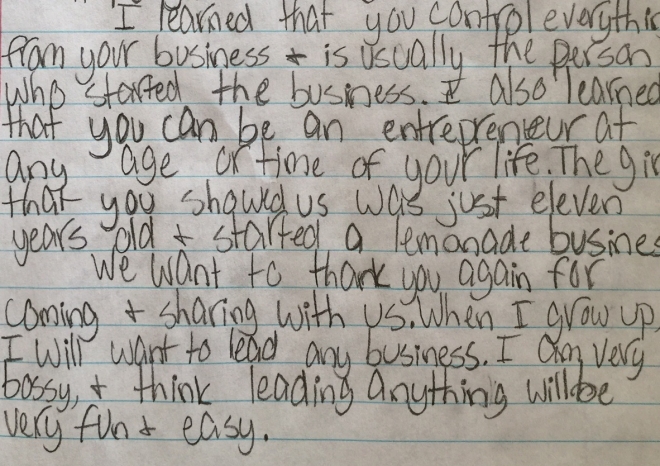 I learned that you control everythin
from your business + is usually the person
who started the business. I also learned
that you can be an entrepreneur at
any age or time of your life. The gir
that you showed us was just eleven
years old + started a lemonade busines
We want to thank you again for
coming + sharing with us. When I grow up,
I will want to lead any business. I am very
bossy, + think leading anything will be
very fun + easy.